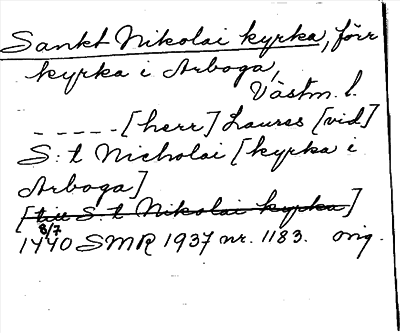 Sankt Nikolai kyrka, förr
kyrka i Arboga,
Västm. l.
_ _ _ _ _ [herr] Laures [vid]
S:t Nicholai [kyrka i
Arboga]
[till S:t Nikolai kyrka]
8/7
1440 SMR 1937 nr. 1183. orig.